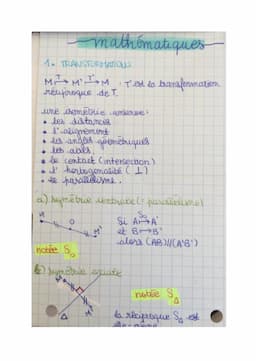 mathématiques
1. TRANSFORMATION
M T→ M' T'→ M . T' est la transformation
réciproque de T.
une isométrie conserve :
• les distances
• l'alignement
• les angles géométriques
• les aires.
• le contact (intersection)
• l'horthogonalité (⊥)
• le parallélisme.
a) symétrie centrale (= parallélisme)
M O M'
Si A So→ A'
et B → B'
alors (AB)//(A'B')
notée So
b) symétrie axiale
M M' Δ
notée SΔ
la réciproque SΔ est